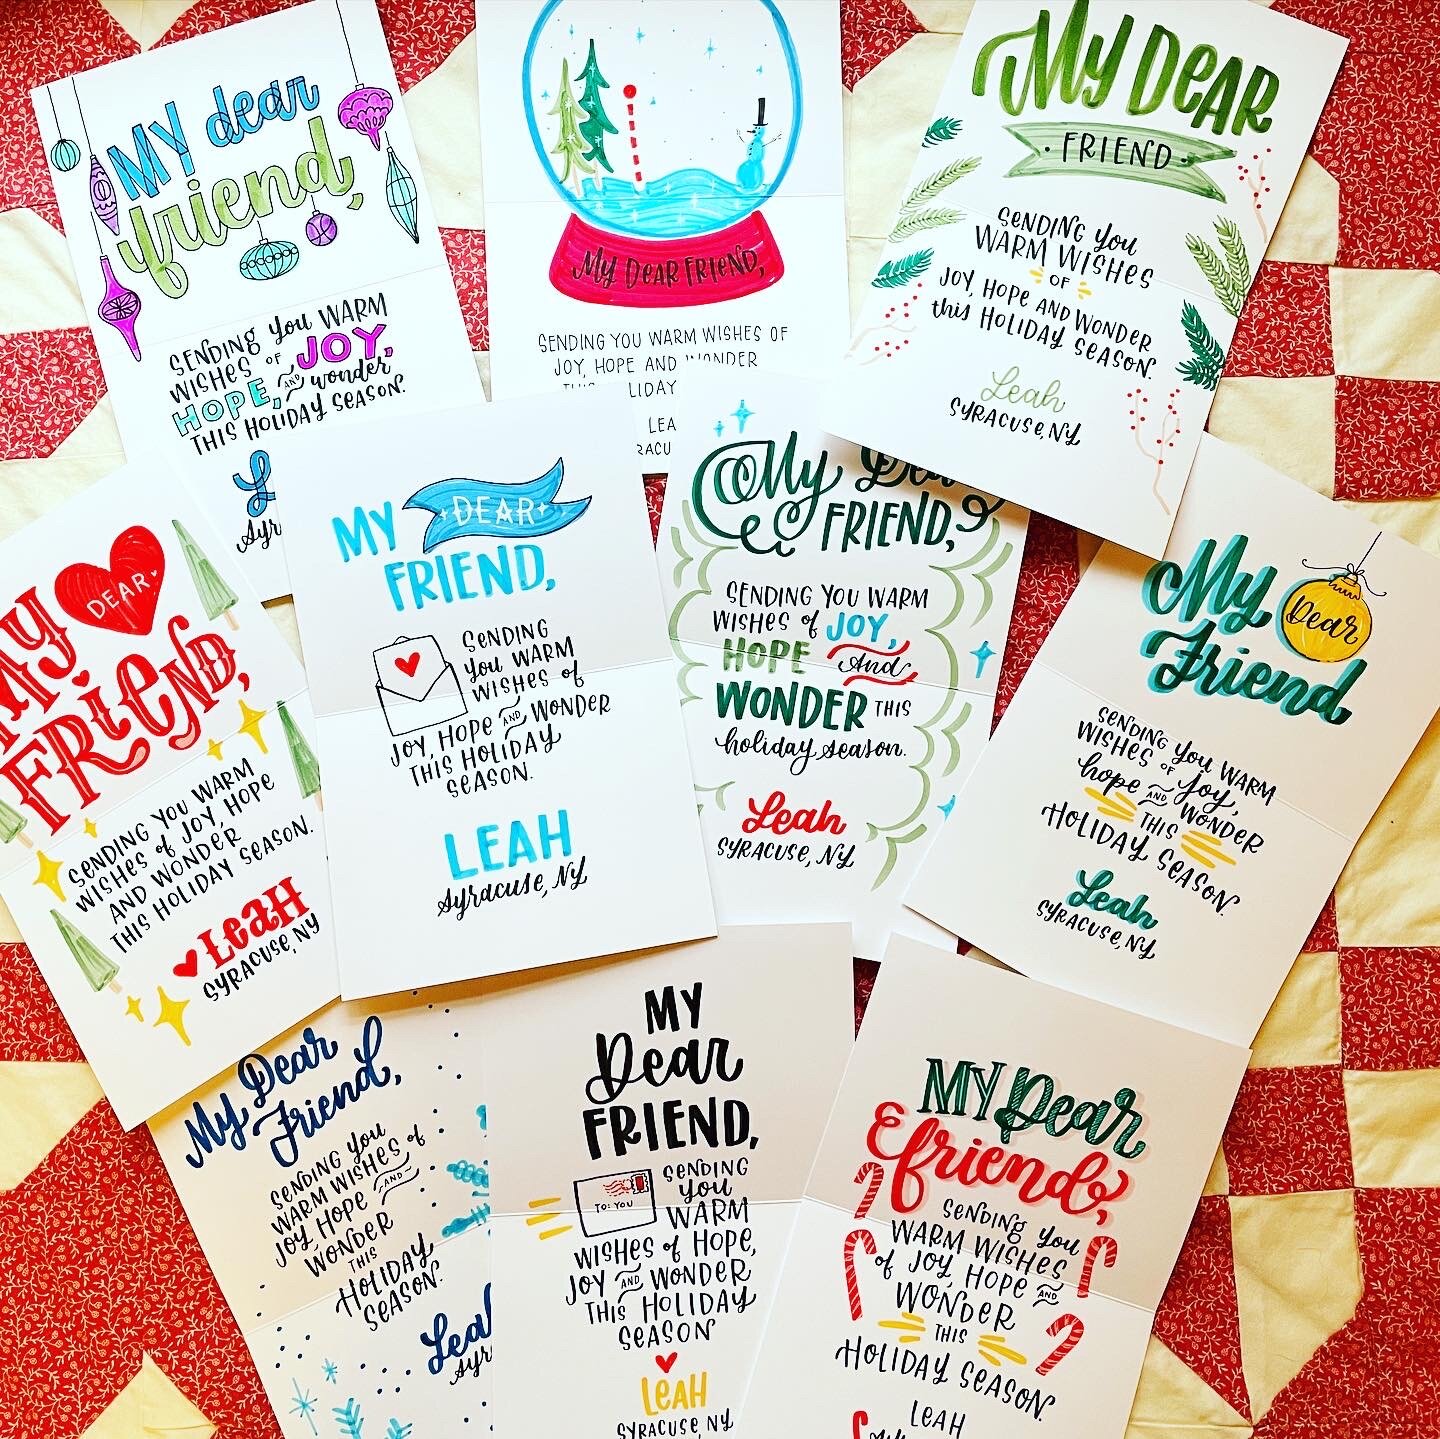 MY dear
friend,
SENDING you WARM
WISHES OF JOY,
HOPE, AND wonder
THIS HOLIDAY SEASON.
L
Syr
My DEAR FRIEND,
SENDING YOU WARM WISHES OF
JOY, HOPE AND WONDER
THIS HOLIDAY
LEA
RACU
My DEAR
· FRIEND ·
SENDING you
WARM WISHES
OF
JOY, HOPE AND WONDER
this HOLIDAY SEASON.
Leah
SYRACUSE, NY
MY DEAR
FRIEND,
SENDING YOU WARM
WISHES of JOY, HOPE
AND WONDER
THIS HOLIDAY SEASON.
LEAH
SYRACUSE, NY
MY DEAR
FRIEND,
SENDING
you WARM
WISHES of
JOY, HOPE AND WONDER
THIS HOLIDAY
SEASON.
LEAH
Syracuse, NY
My Dear
FRIEND,
SENDING YOU WARM
WISHES of JOY,
HOPE And
WONDER THIS
holiday season.
Leah
SYRACUSE, NY
My Dear
Friend
SENDING you WARM
WISHES OF joy,
hope AND WONDER
THIS
HOLIDAY SEASON.
Leah
SYRACUSE, NY
My Dear
Friend,
SENDING you
WARM WISHES of
JOY HOPE AND
WONDER
THIS
HOLIDAY
SEASON.
Leah
Syr
MY
Dear
FRIEND,
TO: YOU
SENDING
you
WARM
WISHES of HOPE,
JOY AND WONDER
THIS HOLIDAY
SEASON
LEAH
SYRACUSE, NY
MY Dear
friend,
SENDING you
WARM WISHES
of JOY, HOPE AND
WONDER
THIS
HOLIDAY SEASON.
LEAH